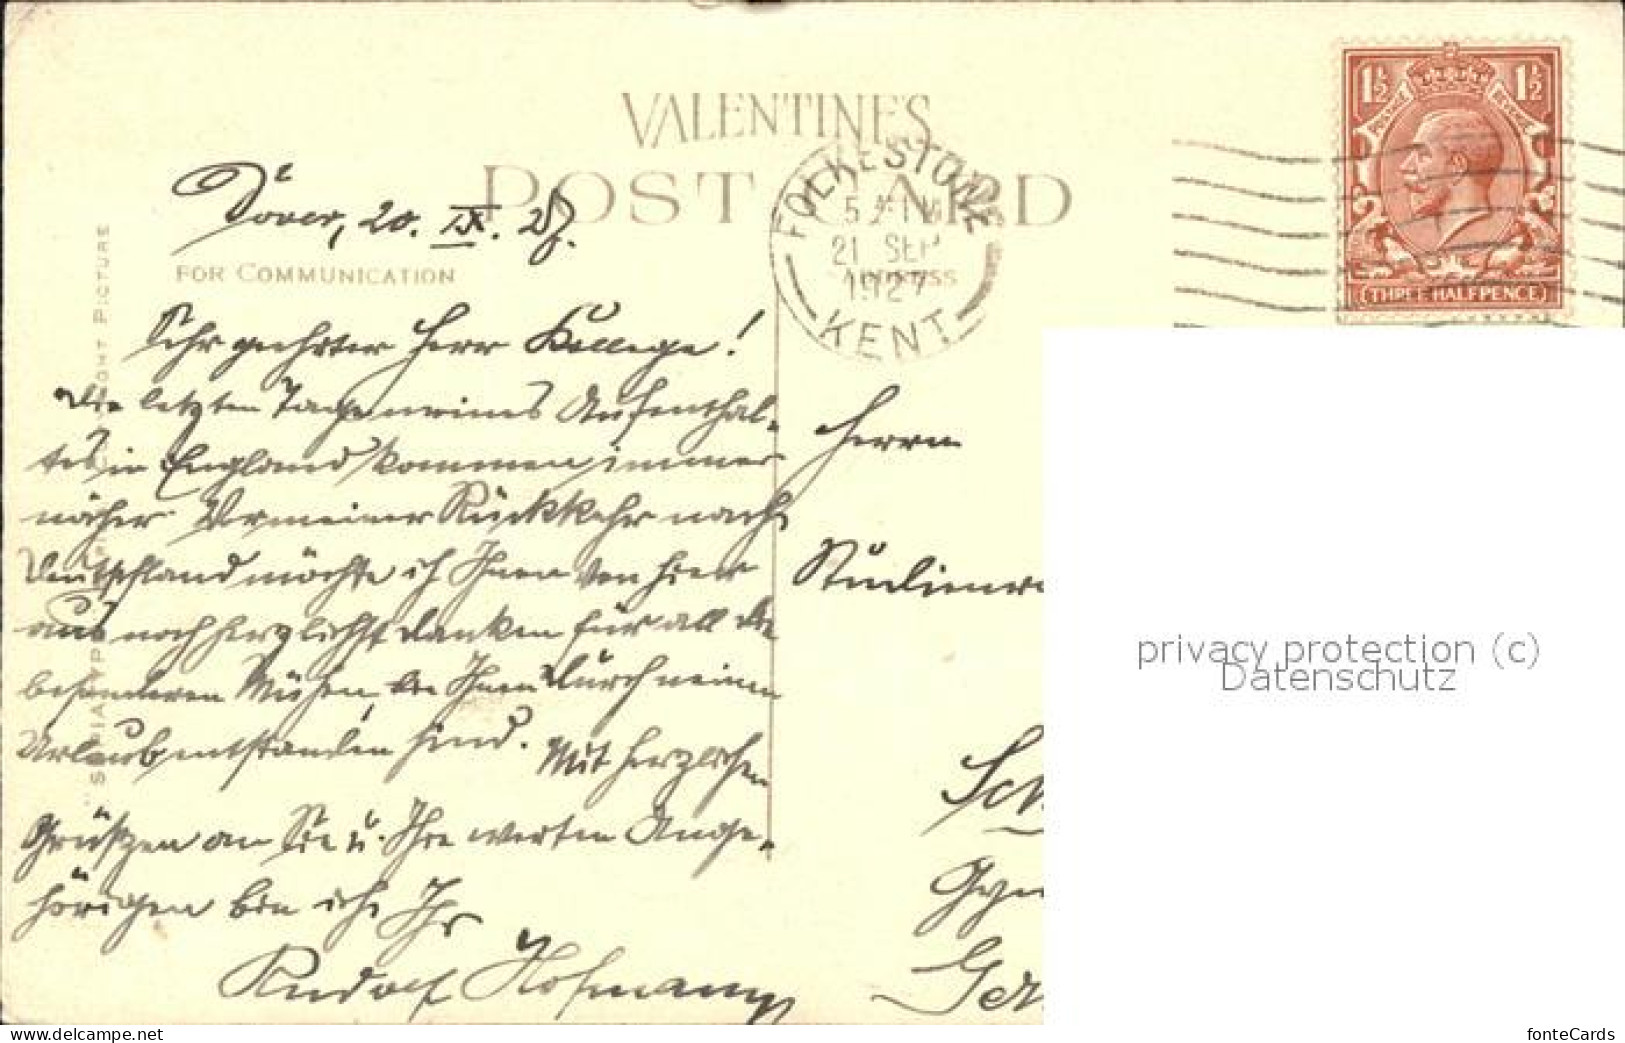 VALENTINE'S
POST CARD
FOLKESTONE
5 30 PM
21 SEP
1927
KENT
1½ 1½
POSTAGE REVENUE
(THREE HALFPENCE)
FOR COMMUNICATION
ADDRESS
Dover, 20. IX. 27.
Sehr geehrter Herr Kollege!
Die letzten Tage meines Aufenthal-
tes in England kommen immer
näher. Vor meiner Rückkehr nach
Deutschland möchte ich Ihnen von hier
aus noch herzlichst danken für all die
besonderen Mühen, die Ihnen durch meinen
Urlaub entstanden sind. Mit herzlichen
Grüßen an Sie u. Ihre werten Ange-
hörigen bin ich Ihr
Rudolf Hofmann
Herrn
Studienr
Sch
Gym
Ger
privacy protection (c)
Datenschutz
fonteCards
www.delcampe.net